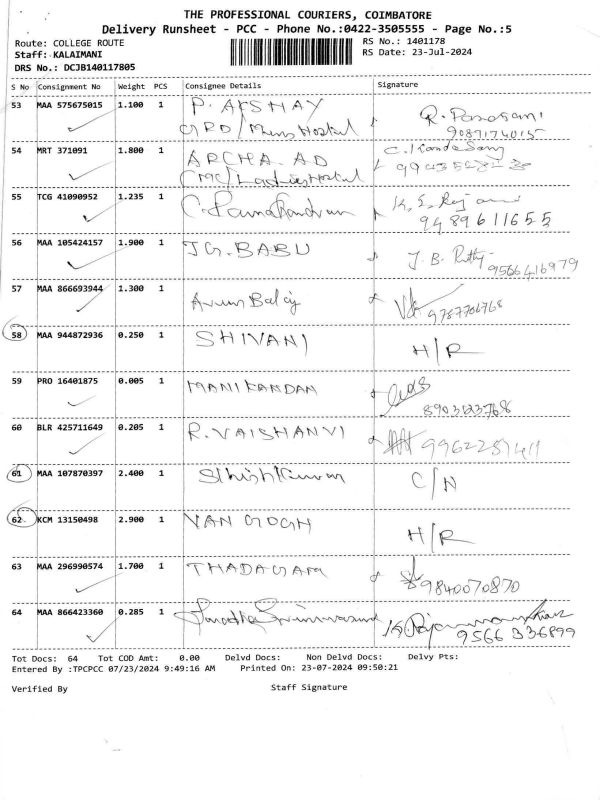 THE PROFESSIONAL COURIERS, COIMBATORE
Delivery Runsheet - PCC - Phone No.:0422-3505555 - Page No.:5
Route: COLLEGE ROUTE
RS No.: 1401178
Staff: KALAIMANI
RS Date: 23-Jul-2024
DRS No.: DCJB140117805
S No Consignment No Weight PCS Consignee Details Signature
53 MAA 575675015 1.100 1 P. AKSHAY
GRD/Mens Hostel
9087174015
54 MRT 371091 1.800 1 ARCHA. AD
Ladies Hostel
55 TCG 41090952 1.235 1 C. Ramachandran
9489611655
56 MAA 105424157 1.900 1 JG. BABU J. B.
9566416979
57 MAA 866693944 1.300 1 Arun Balaj
9787706768
58 MAA 944872936 0.250 1 SHIVANI H/R
59 PRO 16401875 0.005 1 MANIKANDAN
8903523768
60 BLR 425711649 0.205 1 R. VAISHANVI
61 MAA 107870397 2.400 1 C/N
62 KCM 13150498 2.900 1 VAN GOGH H/R
63 MAA 296990574 1.700 1 THADAGAM 9840070870
64 MAA 866423360 0.285 1
9566336899
Tot Docs: 64 Tot COD Amt: 0.00 Delvd Docs: Non Delvd Docs: Delvy Pts:
Entered By :TPCPCC 07/23/2024 9:49:16 AM Printed On: 23-07-2024 09:50:21
Verified By Staff Signature